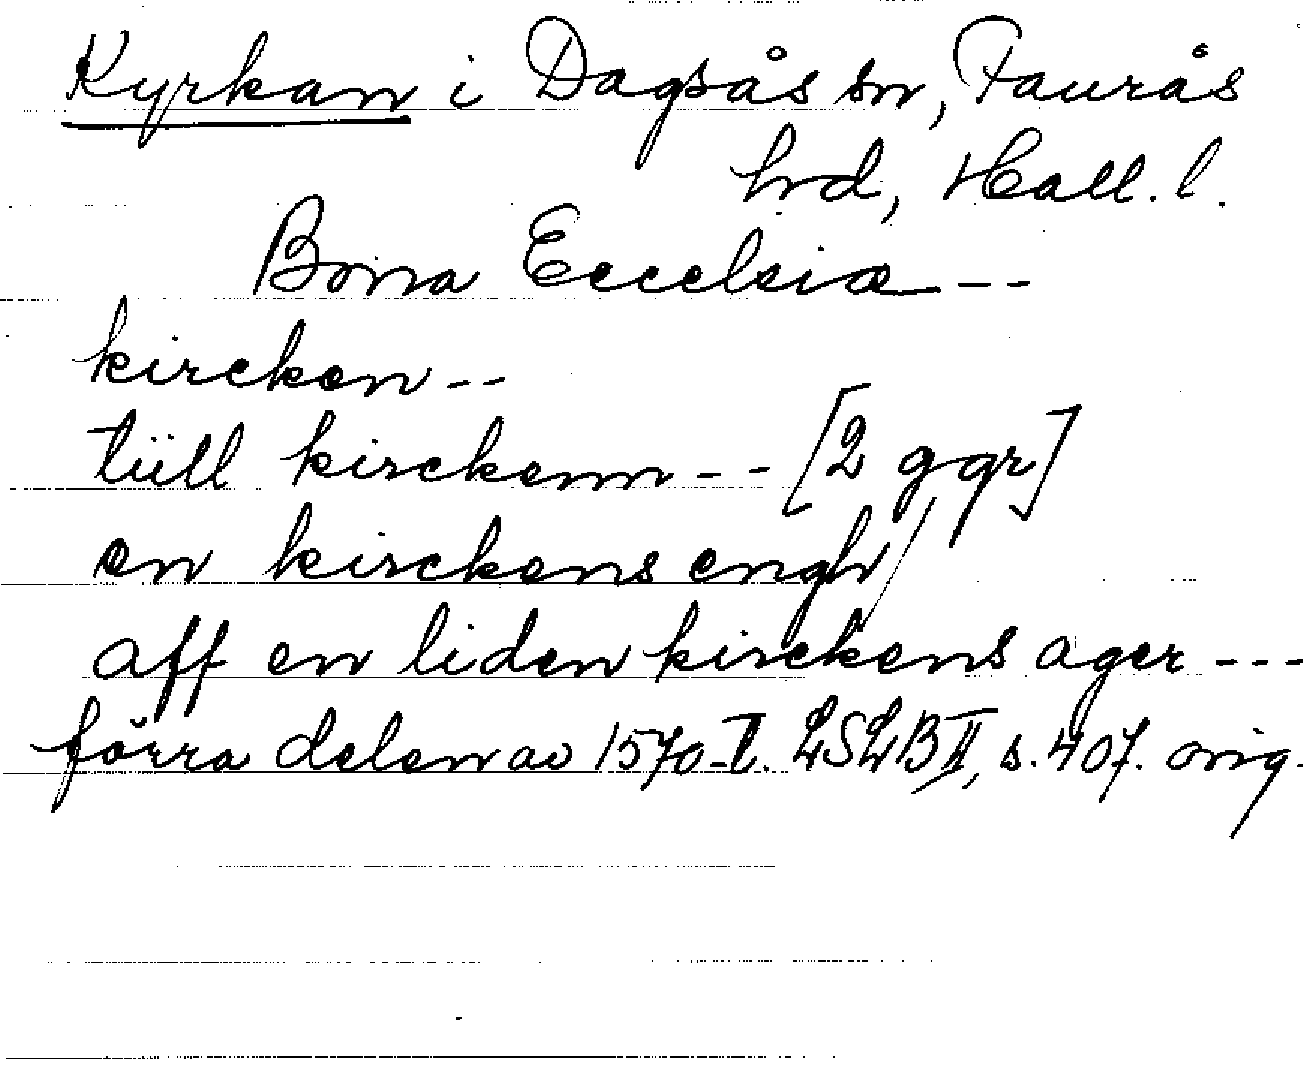 Kyrkan i Dagsås sn, Faurås
hrd, Hall. l.
Bona Eccelsiæ --
kircken --
tiill kirckenn -- [2 ggr]
en kirckens engh/
aff en liden kirckens ager ---
förra delen av 1570-t. LSLB II, s. 407. orig.